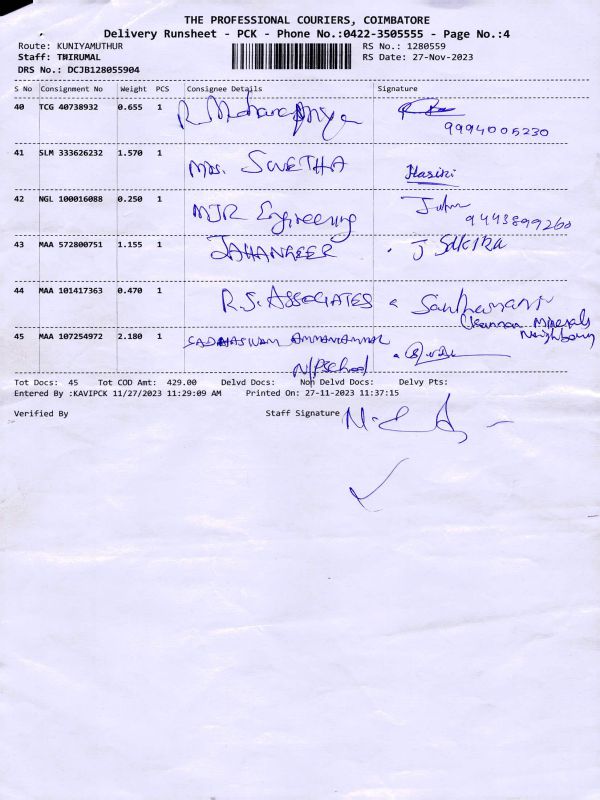 THE PROFESSIONAL COURIERS, COIMBATORE
Delivery Runsheet - PCK - Phone No.:0422-3505555 - Page No.:4
Route: KUNIYAMUTHUR RS No.: 1280559
Staff: THIRUMAL RS Date: 27-Nov-2023
DRS No.: DCJB128055904
S No Consignment No Weight PCS Consignee Details Signature
40 TCG 40738932 0.655 1 R Mohanapriya
9994005230
41 SLM 333626232 1.570 1 Mrs. SWETHA Hasini
42 NGL 100016088 0.250 1 MJR Engineering
9443899260
43 MAA 572800751 1.155 1 JAHANGEER J Sakira
44 MAA 101417363 0.470 1 R.S. ASSOCIATES
Minerals
45 MAA 107254972 2.180 1 Neighbour
N/P School
Tot Docs: 45 Tot COD Amt: 429.00 Delvd Docs: Non Delvd Docs: Delvy Pts:
Entered By :KAVIPCK 11/27/2023 11:29:09 AM Printed On: 27-11-2023 11:37:15
Verified By Staff Signature